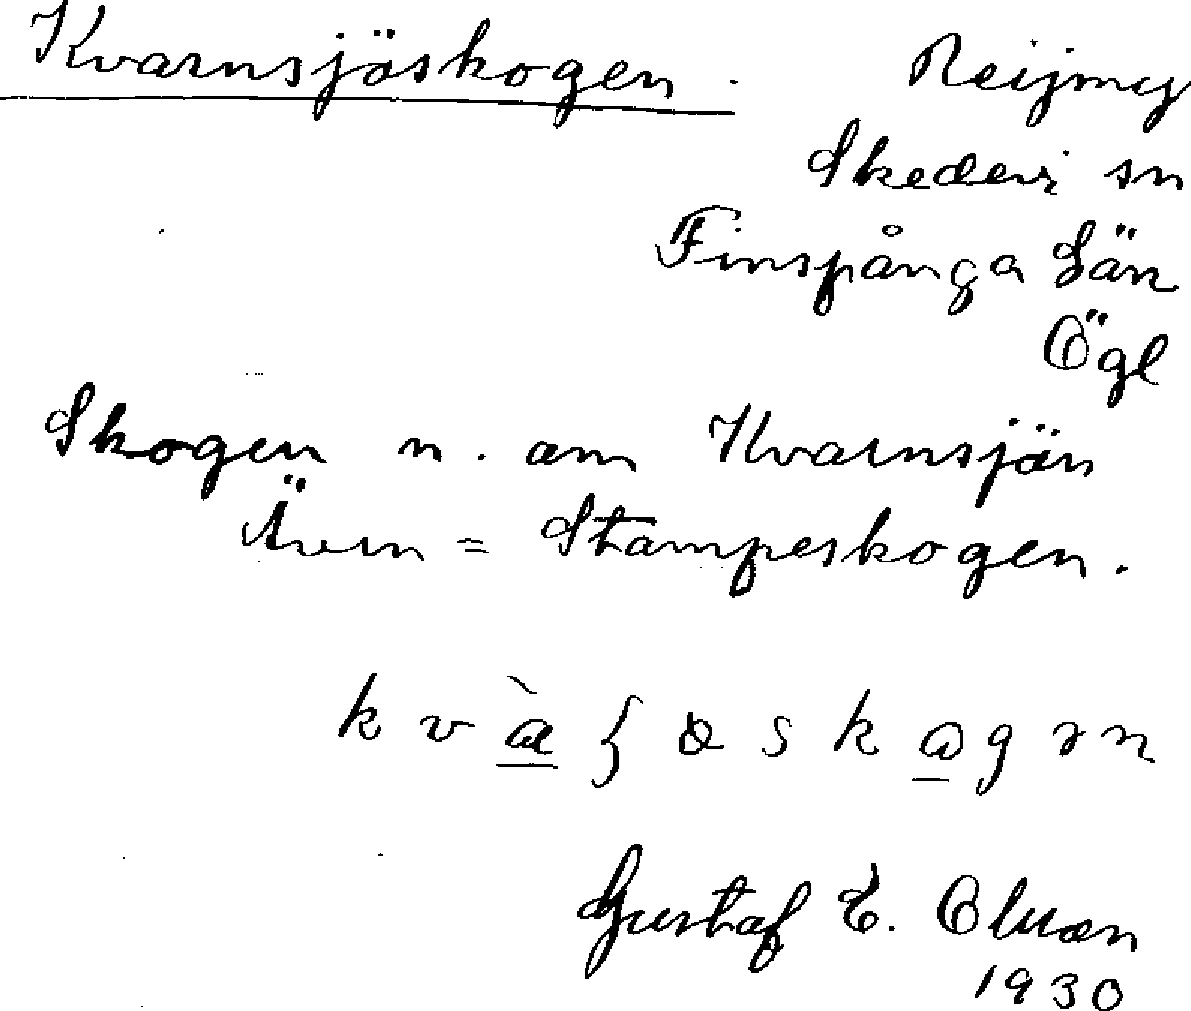 Kvarnsjöskogen. Reijmy
Skedevi sn
Finspånga Län
Ögl
Skogen n. om Kvarnsjön
Även = Stampeskogen.
Gustaf E. Olsson
1930